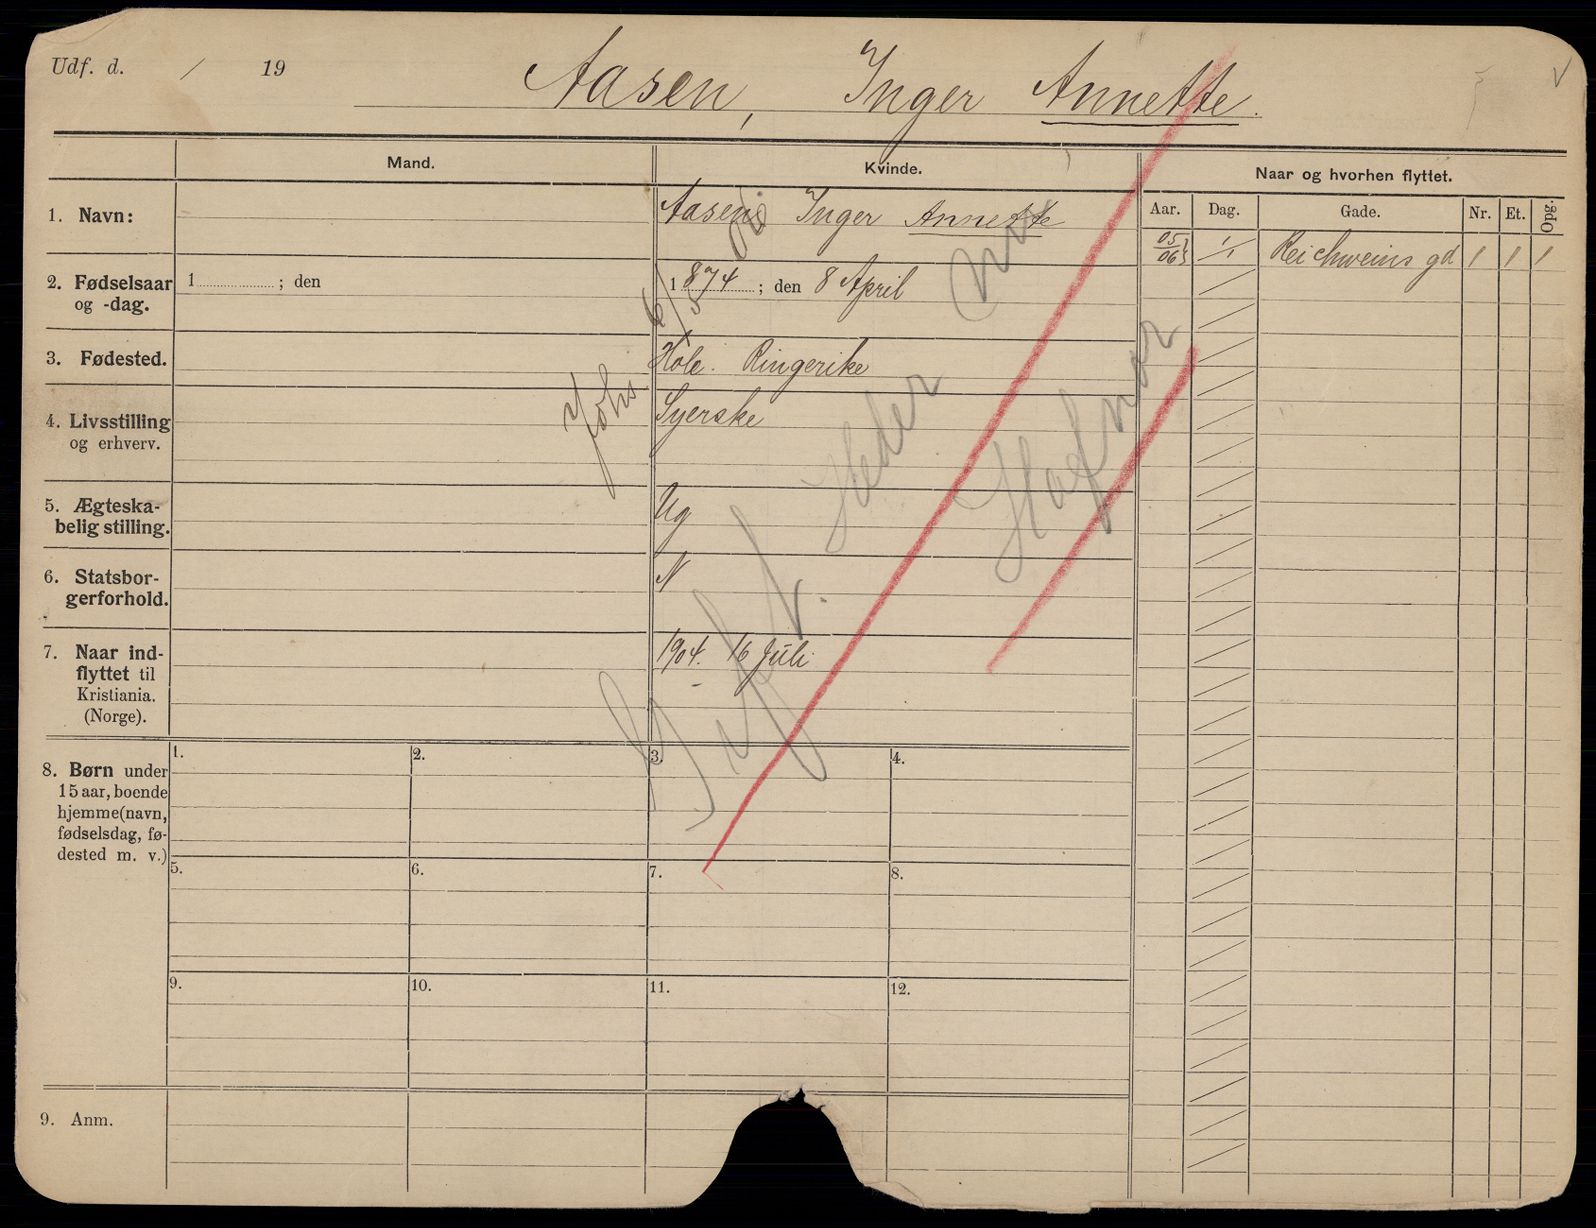 Udf. d. / 19
Aasen, Inger Annette.
Mand.
Kvinde.
Naar og hvorhen flyttet.
Aar. Dag. Gade. Nr. Et. Opg.
1. Navn:
Aasen, Inger Annette
05/06 1/1 Reichweins gd 1 1 1
2. Fødselsaar
og -dag.
1 ; den
1874 ; den 8 April
3. Fødested.
Hole. Ringerike
4. Livsstilling
og erhverv.
Syerske
5. Ægteska-
belig stilling.
Ug
6. Statsbor-
gerforhold.
N
7. Naar ind-
flyttet til
Kristiania.
(Norge).
1904. 16 Juli
Gift 6/5 06
Johs
Heder
Hofnor
8. Børn under
15 aar, boende
hjemme (navn,
fødselsdag, fø-
dested m. v.)
1. 2. 3. 4.
5. 6. 7. 8.
9. 10. 11. 12.
9. Anm.